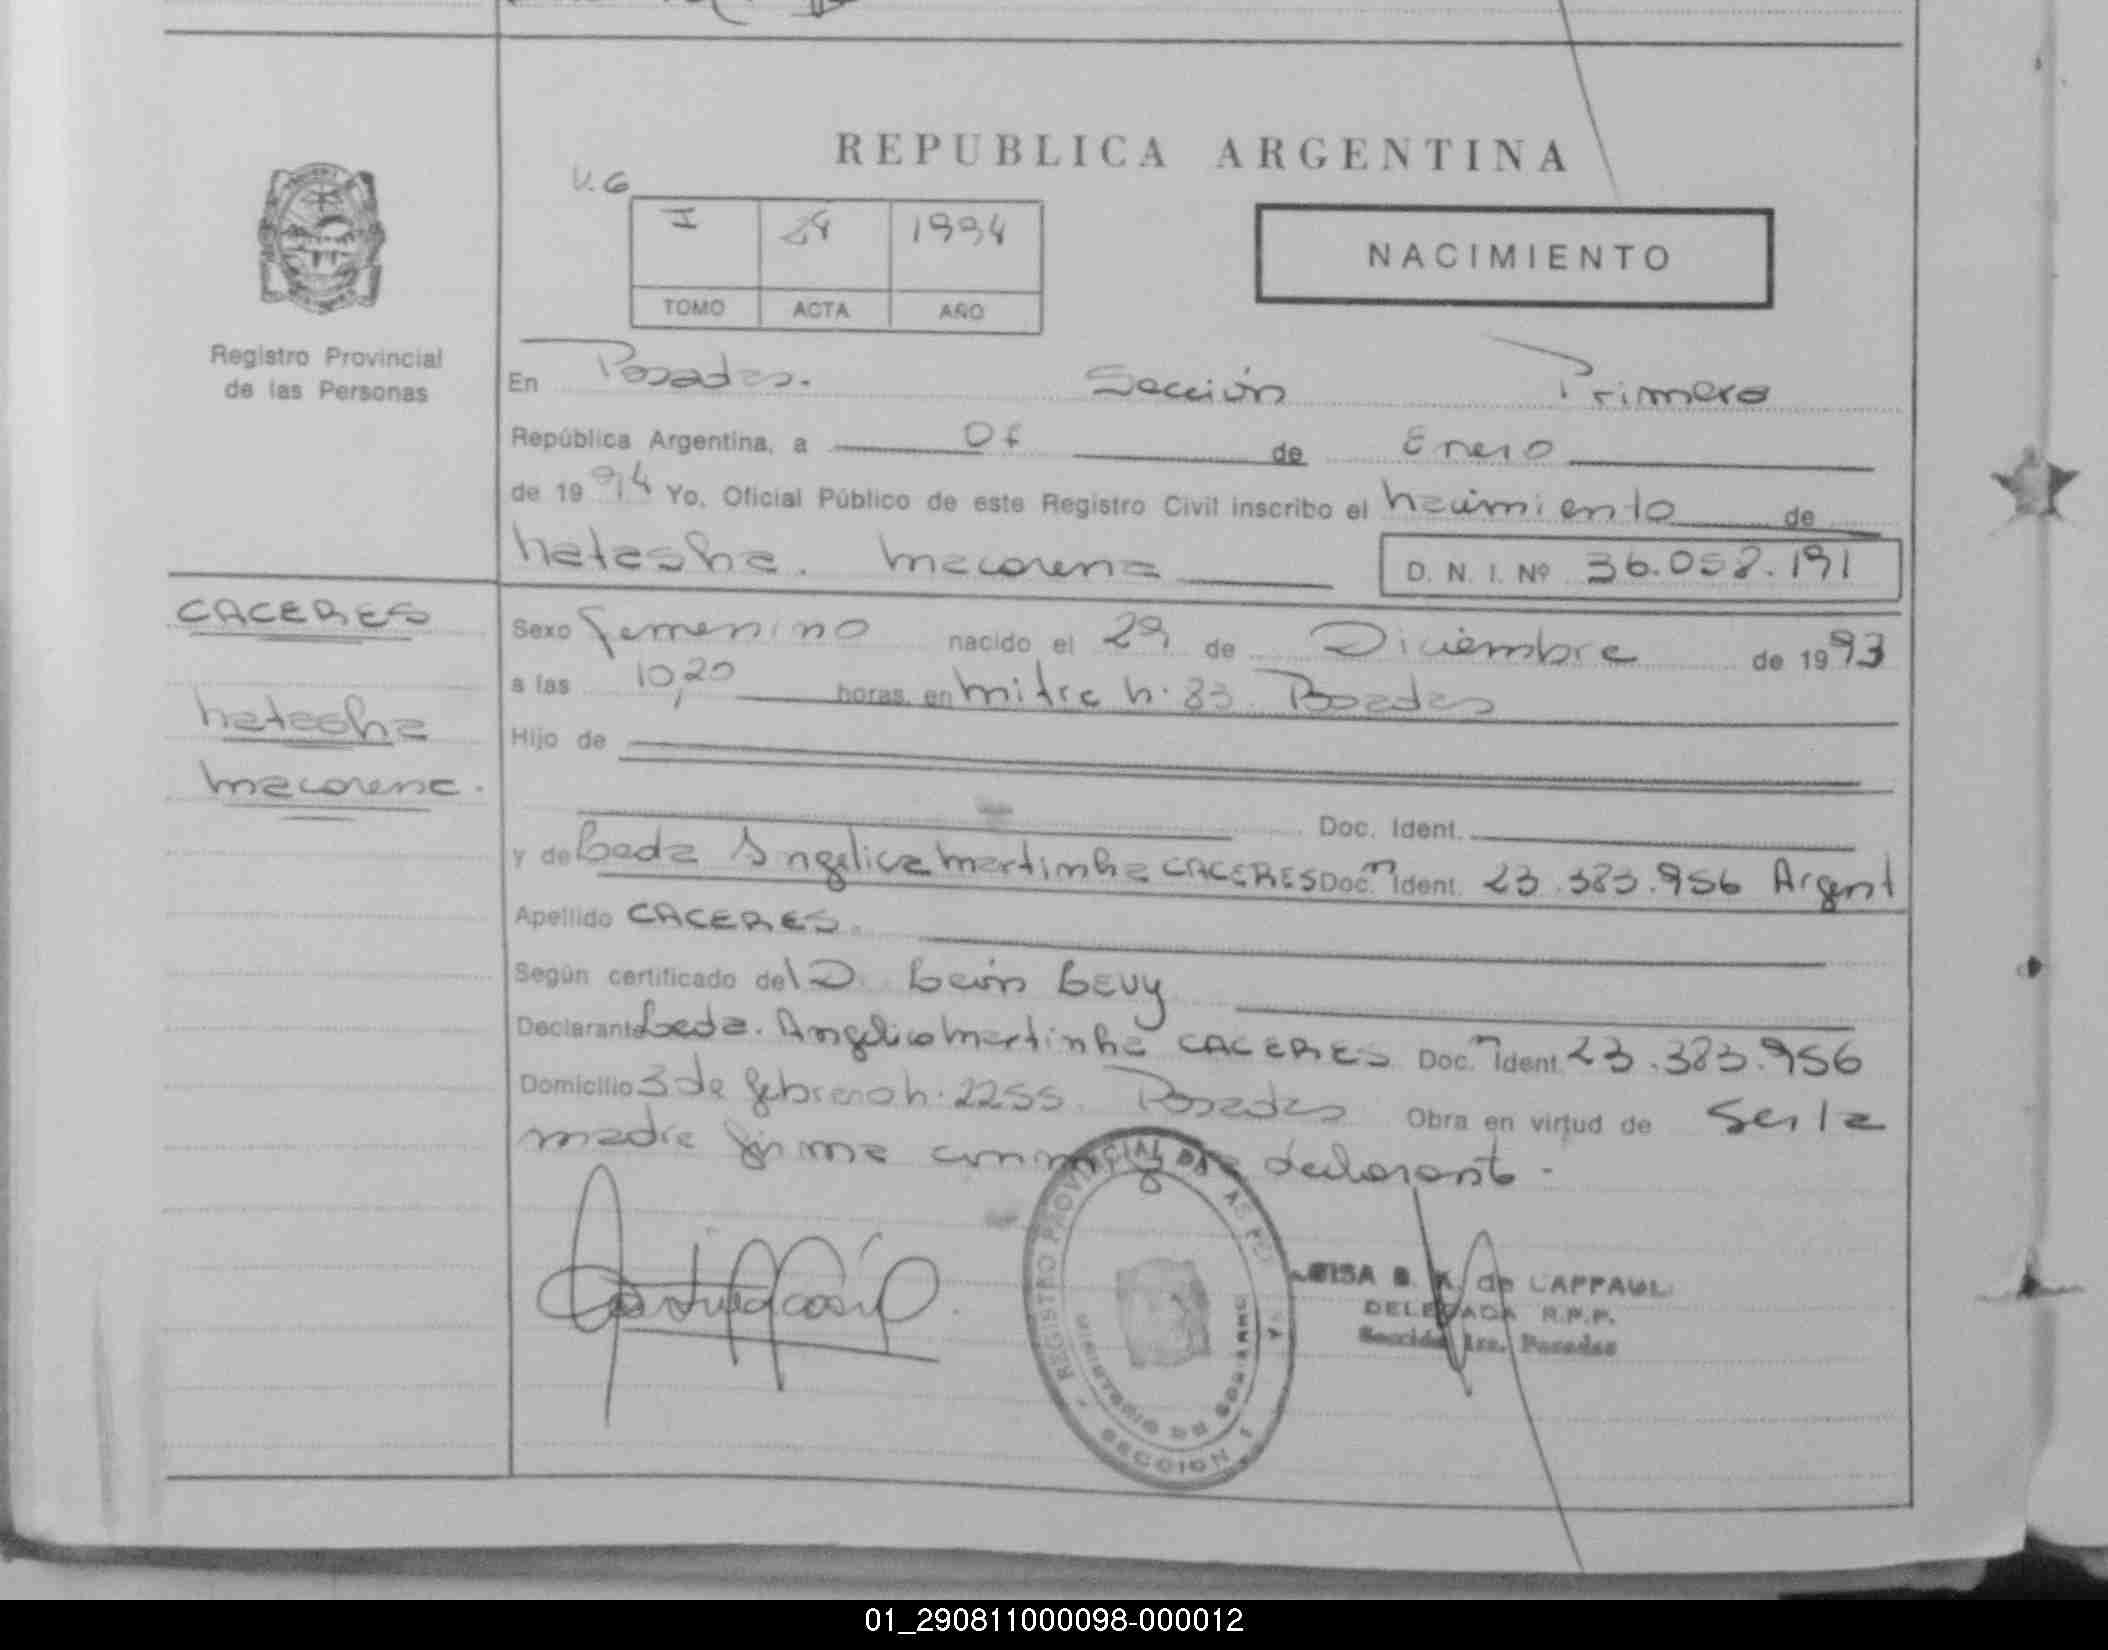 REPUBLICA ARGENTINA
V.G
I 24 1994
TOMO ACTA AÑO
NACIMIENTO
Registro Provincial
de las Personas
En Posadas. Sección Primera
República Argentina, a de Enero
de 1994 Yo, Oficial Público de este Registro Civil inscribo el nacimiento de
Natasha. Macarena D. N. I. Nº 36.058.191
CACERES
Natasha
Macarena.
Sexo femenino nacido el 29 de Diciembre de 1993
a las 10,20 horas en Mitre N. 83. Posadas
Hijo de
Doc. Ident.
y de Leda Angelica Martinha CACERES Doc. Ident. 23.383.956 Argent
Apellido CACERES.
Según certificado del D. León Levy
Declarante Leda. Angelica Martinha CACERES Doc. Ident. 23.383.956
Domicilio 3 de febrero N. 2255. Posadas Obra en virtud de Ser la
madre firma conmigo declarante -
REGISTRO PROVINCIAL DE LAS
MINISTERIO DE GOBIERNO
SECCION 1
de
DELEGADA R.P.P.
Sección 1ra. Posadas
01_290811000098-000012